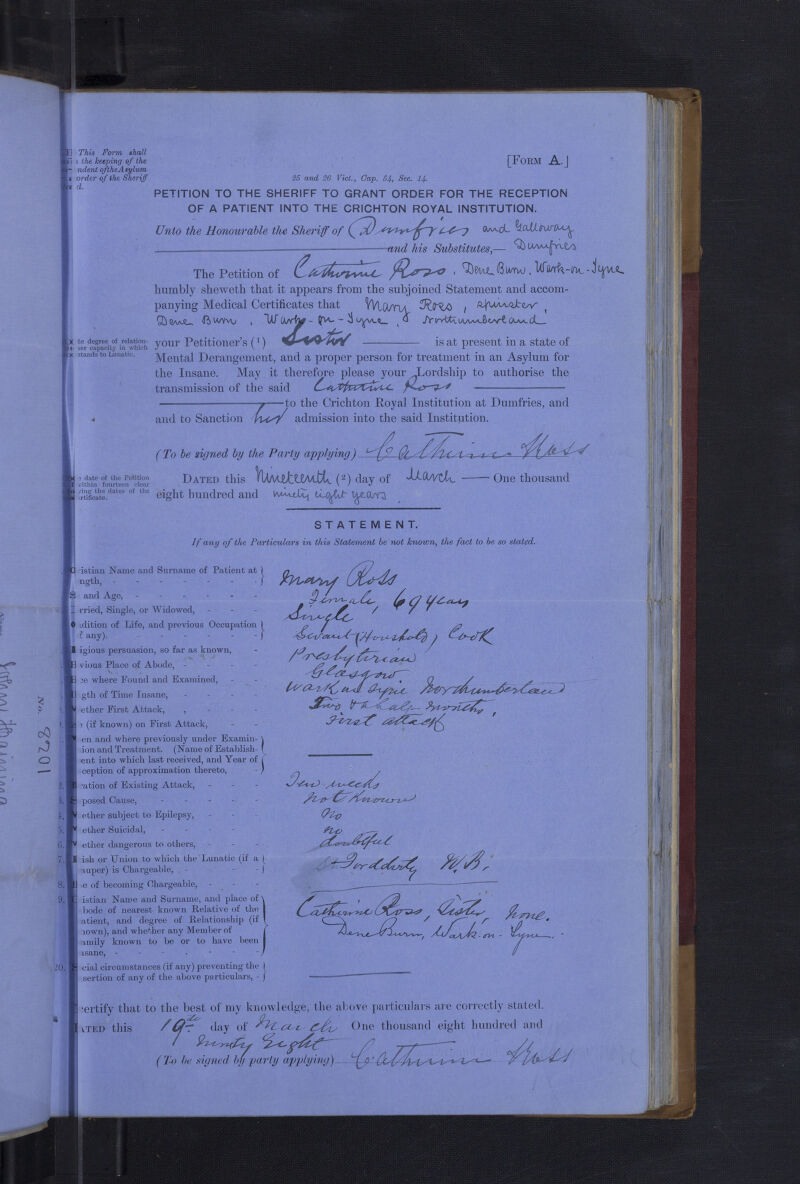 This Form shall
the keeping of the
ndent of the Asylum
order of the Sheriff
d.
[FORM A.]
25 and 26 Vict., Cap. 54, Sec. 14.
PETITION TO THE SHERIFF TO GRANT ORDER FOR THE RECEPTION
OF A PATIENT INTO THE CRICHTON ROYAL INSTITUTION.
Unto the Honourable the Sheriff of Dumfries and Galloway
and his Substitutes,— Dumfries
The Petition of Catherine Ross, Dene Burn, Wark-on-Tyne
humbly sheweth that it appears from the subjoined Statement and accom-
panying Medical Certificates that Mary Ross, spinster,
Dene Burn, Wark-on-Tyne, Northumberland
te degree of relation-
er capacity in which
stands to Lunatic.
your Petitioner's (1) Sister is at present in a state of
Mental Derangement, and a proper person for treatment in an Asylum for
the Insane. May it therefore please your Lordship to authorise the
transmission of the said Catherine Ross
to the Crichton Royal Institution at Dumfries, and
and to Sanction her admission into the said Institution.
(To be signed by the Party applying) Catherine Ross
date of the Petition
within fourteen clear
ing the dates of the
rtificate.
DATED this Nineteenth (2) day of March One thousand
eight hundred and ninety eight years.
STATEMENT.
If any of the Particulars in this Statement be not known, the fact to be so stated.
istian Name and Surname of Patient at
ngth, - Mary Ross
and Age, - Female, 69 years
rried, Single, or Widowed, - Single
dition of Life, and previous Occupation
f any). - Servant (Household) Cook
igious persuasion, so far as known, - Presbyterian
vious Place of Abode, - Glasgow
ce where Found and Examined, - Wark on Tyne Northumberland
gth of Time Insane, - Two & a half months.
ether First Attack, - First attack
(if known) on First Attack, -
en and where previously under Examin-
ion and Treatment. (Name of Establish-
ent into which last received, and Year of
ception of approximation thereto,
2. ration of Existing Attack, - Ten weeks
3. posed Cause, - Not known
4. ether subject to Epilepsy, - No
5. ether Suicidal, - no
6. ether dangerous to others, - doubtful
7. ish or Union to which the Lunatic (if a
auper) is Chargeable, - N.B.
8. e of becoming Chargeable, -
9. istian Name and Surname, and place of
bode of nearest known Relative of the
atient, and degree of Relationship (if
nown), and whether any Member of
amily known to be or to have been
nsane, -
Catherine Ross, Sister, None.
Dene Burn, Wark-on-Tyne.
20. cial circumstances (if any) preventing the
sertion of any of the above particulars, -
certify that to the best of my knowledge, the above particulars are correctly stated.
DATED this 19th day of March One thousand eight hundred and
Ninety Eight
(To be signed by party applying) Catherine Ross
No. 8201